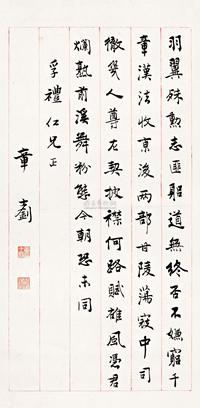 羽翼殊勳志匪躬道無終否不嫌窮千
章漢法收京後兩部甘陵蕩寇中司
徹幾人尊左契披襟何路賦雄風憑君
爛熟前溪舞粉態今朝恐未同
孚禮仁兄正
章士釗